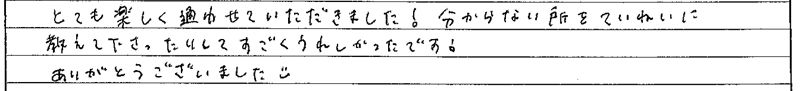 とても楽しく通わせていただきました! 分からない所をていねいに
教えて下さったりしてすごくうれしかったです!
ありがとうございました☺